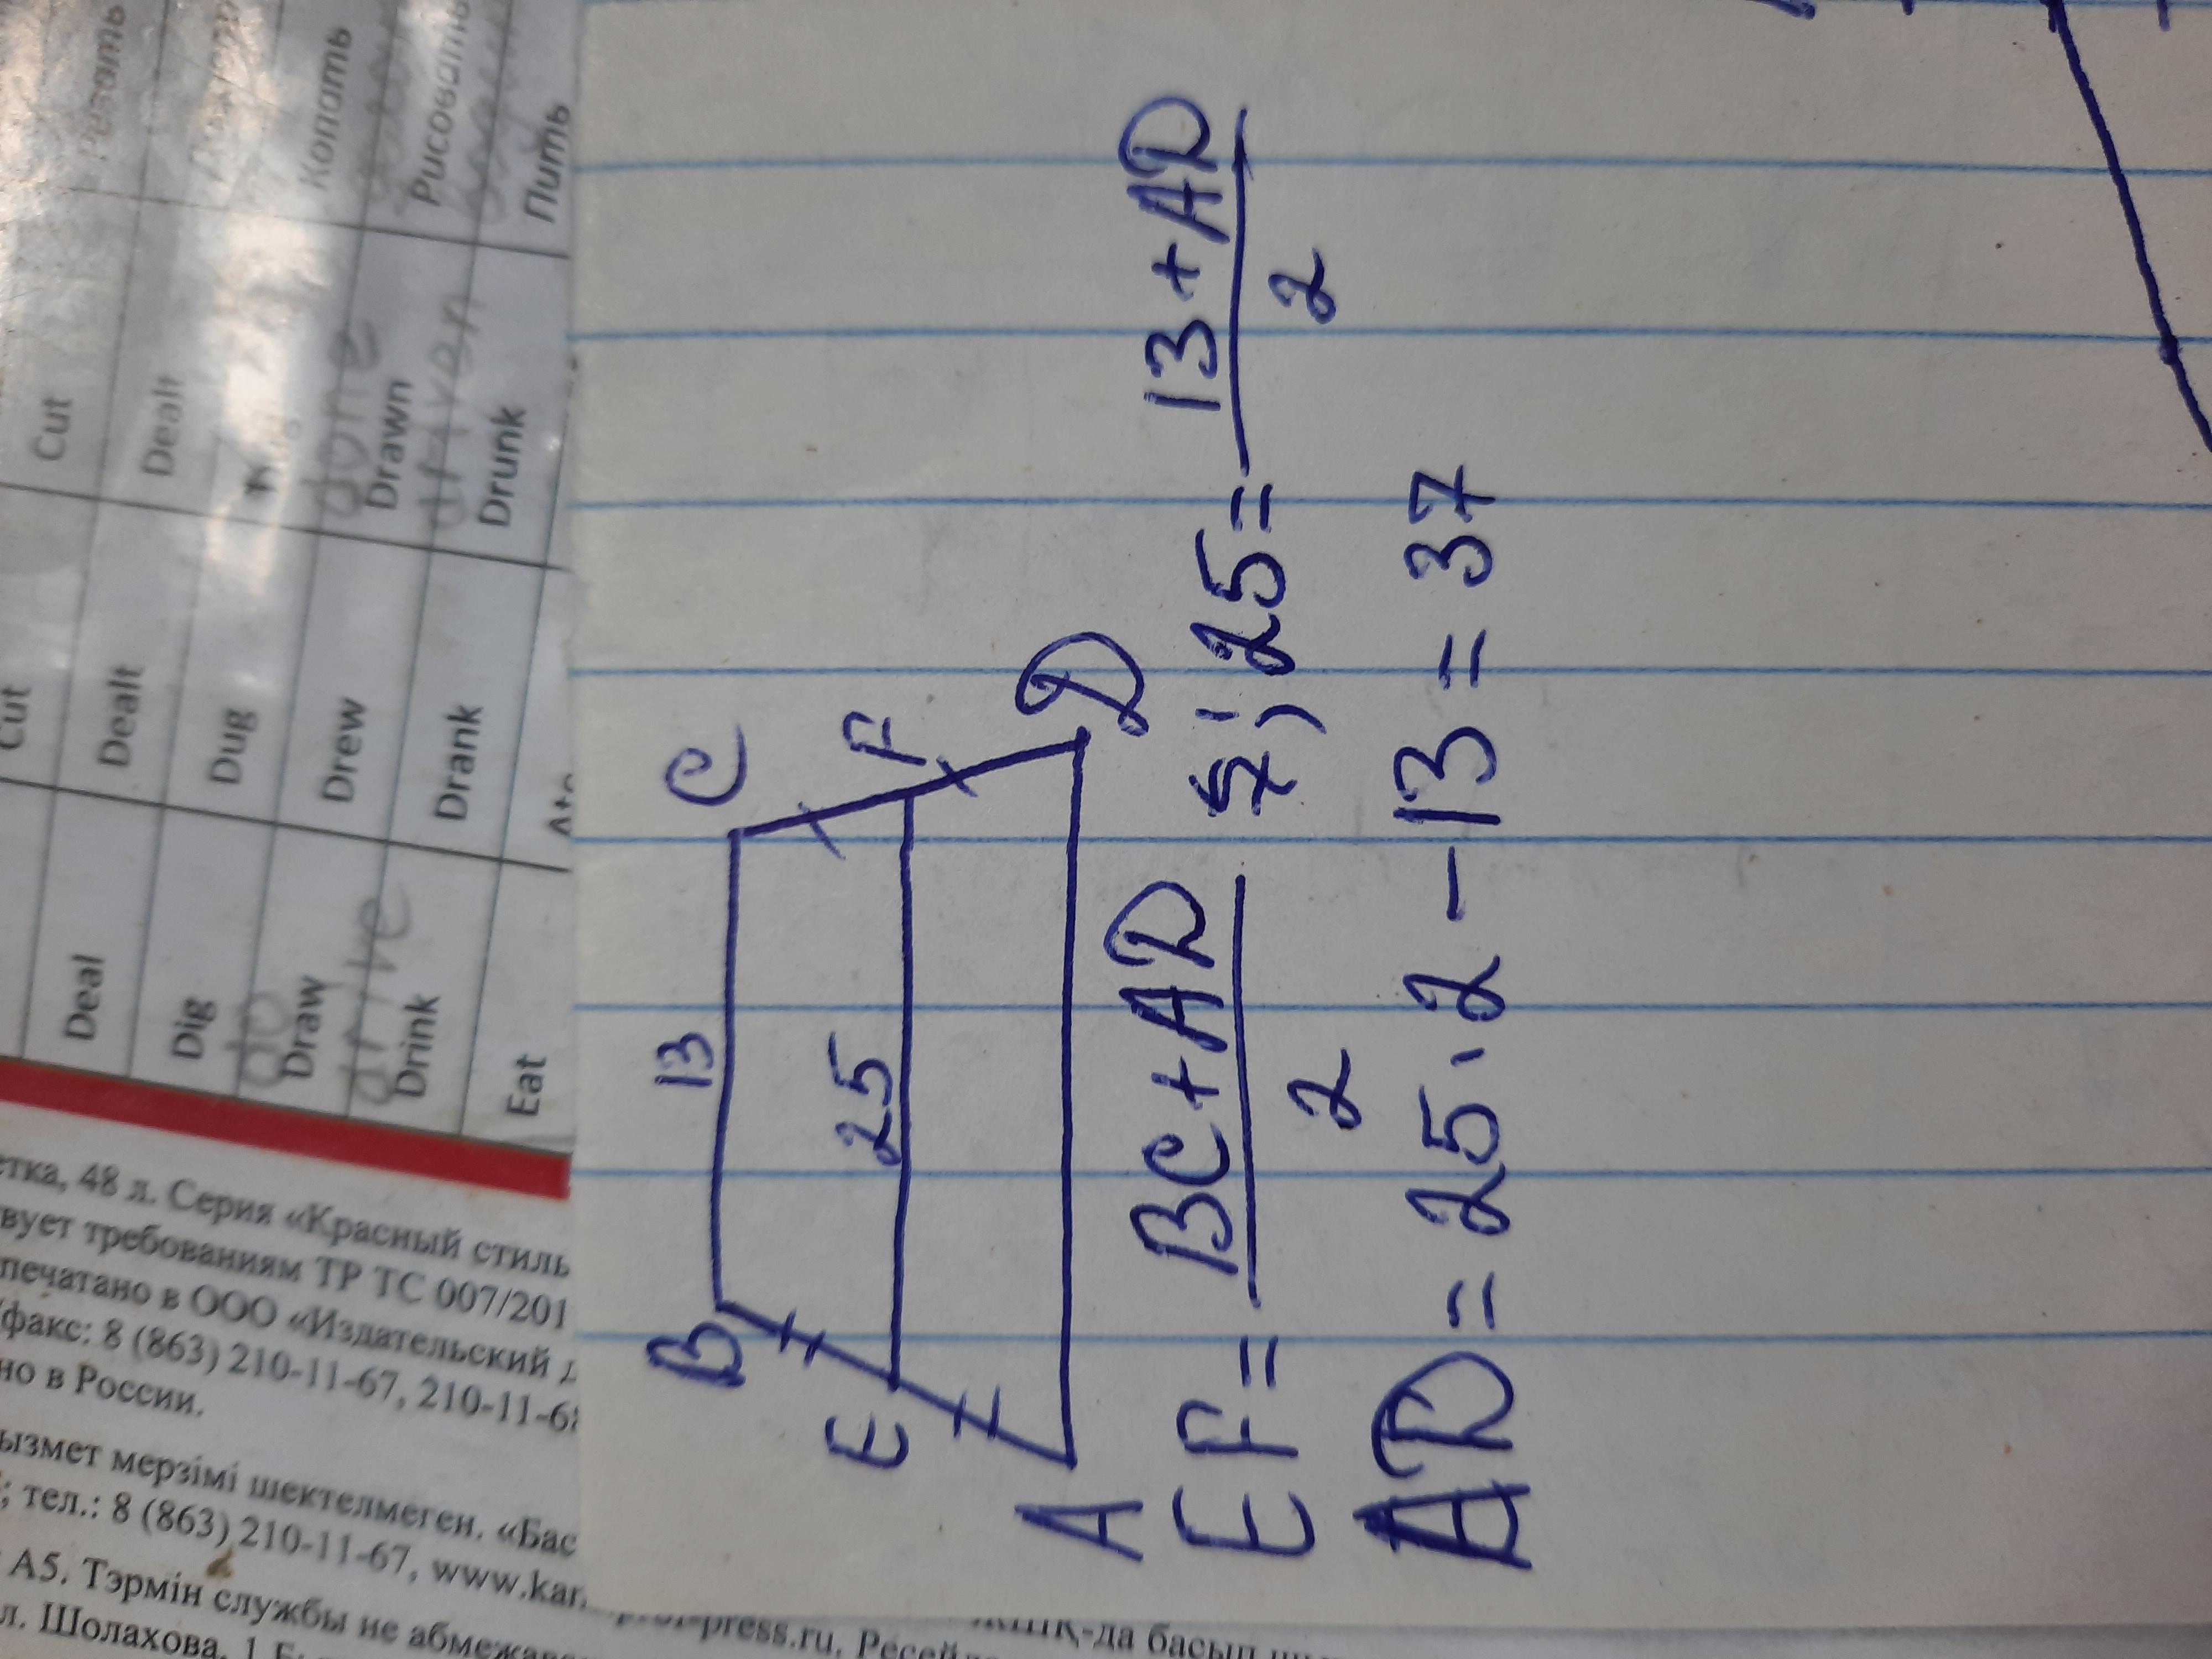 B 13 C
E 25 F
A D
EF = BC + AD / 2 ; 25 = 13 + AD / 2
AD = 25 · 2 - 13 = 37
Cut Cut Резать
Deal Dealt Dealt
Dig Dug
do done
Draw Drew Drawn Копать
drive driven
Drink Drank Drunk Рисовать
Eat Ate Пить
етка, 48 л. Серия «Красный стиль
вует требованиям ТР ТС 007/201
печатано в ООО «Издательский д
факс: 8 (863) 210-11-67, 210-11-68
но в России.
ызмет мерзімі шектелмеген. «Бас
; тел.: 8 (863) 210-11-67, www.kan
prof-press.ru. Ресей
А5. Тэрмін службы не абмежава
л. Шолахова, 1
-да басып